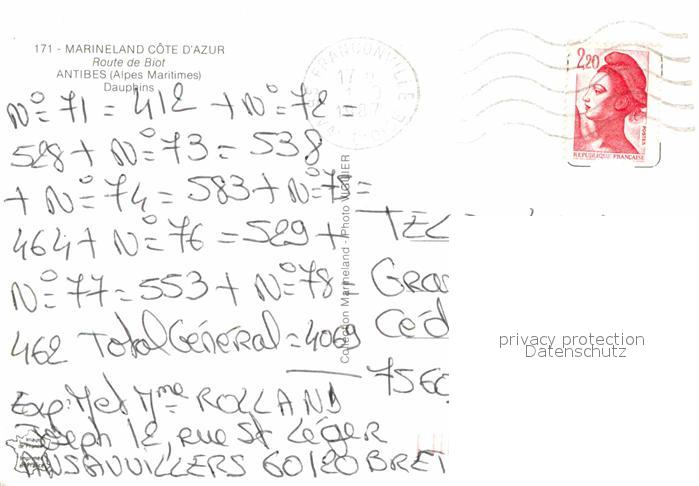 171 - MARINELAND CÔTE D'AZUR
Route de Biot
ANTIBES (Alpes Maritimes)
Dauphins
N° 71 = 412 + N° 72 =
528 + N° 73 = 538
+ N° 74 = 583 + N° 75 =
464 + N° 76 = 529 +
N° 77 = 553 + N° 78 =
462 Total Général = 4069
Exp: M et Mme ROLLAND
Joseph 12, rue St Léger
ANSAUVILLERS 60120 BRET
Collection Marineland - Photo VIGUIER
FRANCONVILLE
2,20
POSTES
REPUBLIQUE FRANÇAISE
Céd
7560
privacy protection
Datenschutz